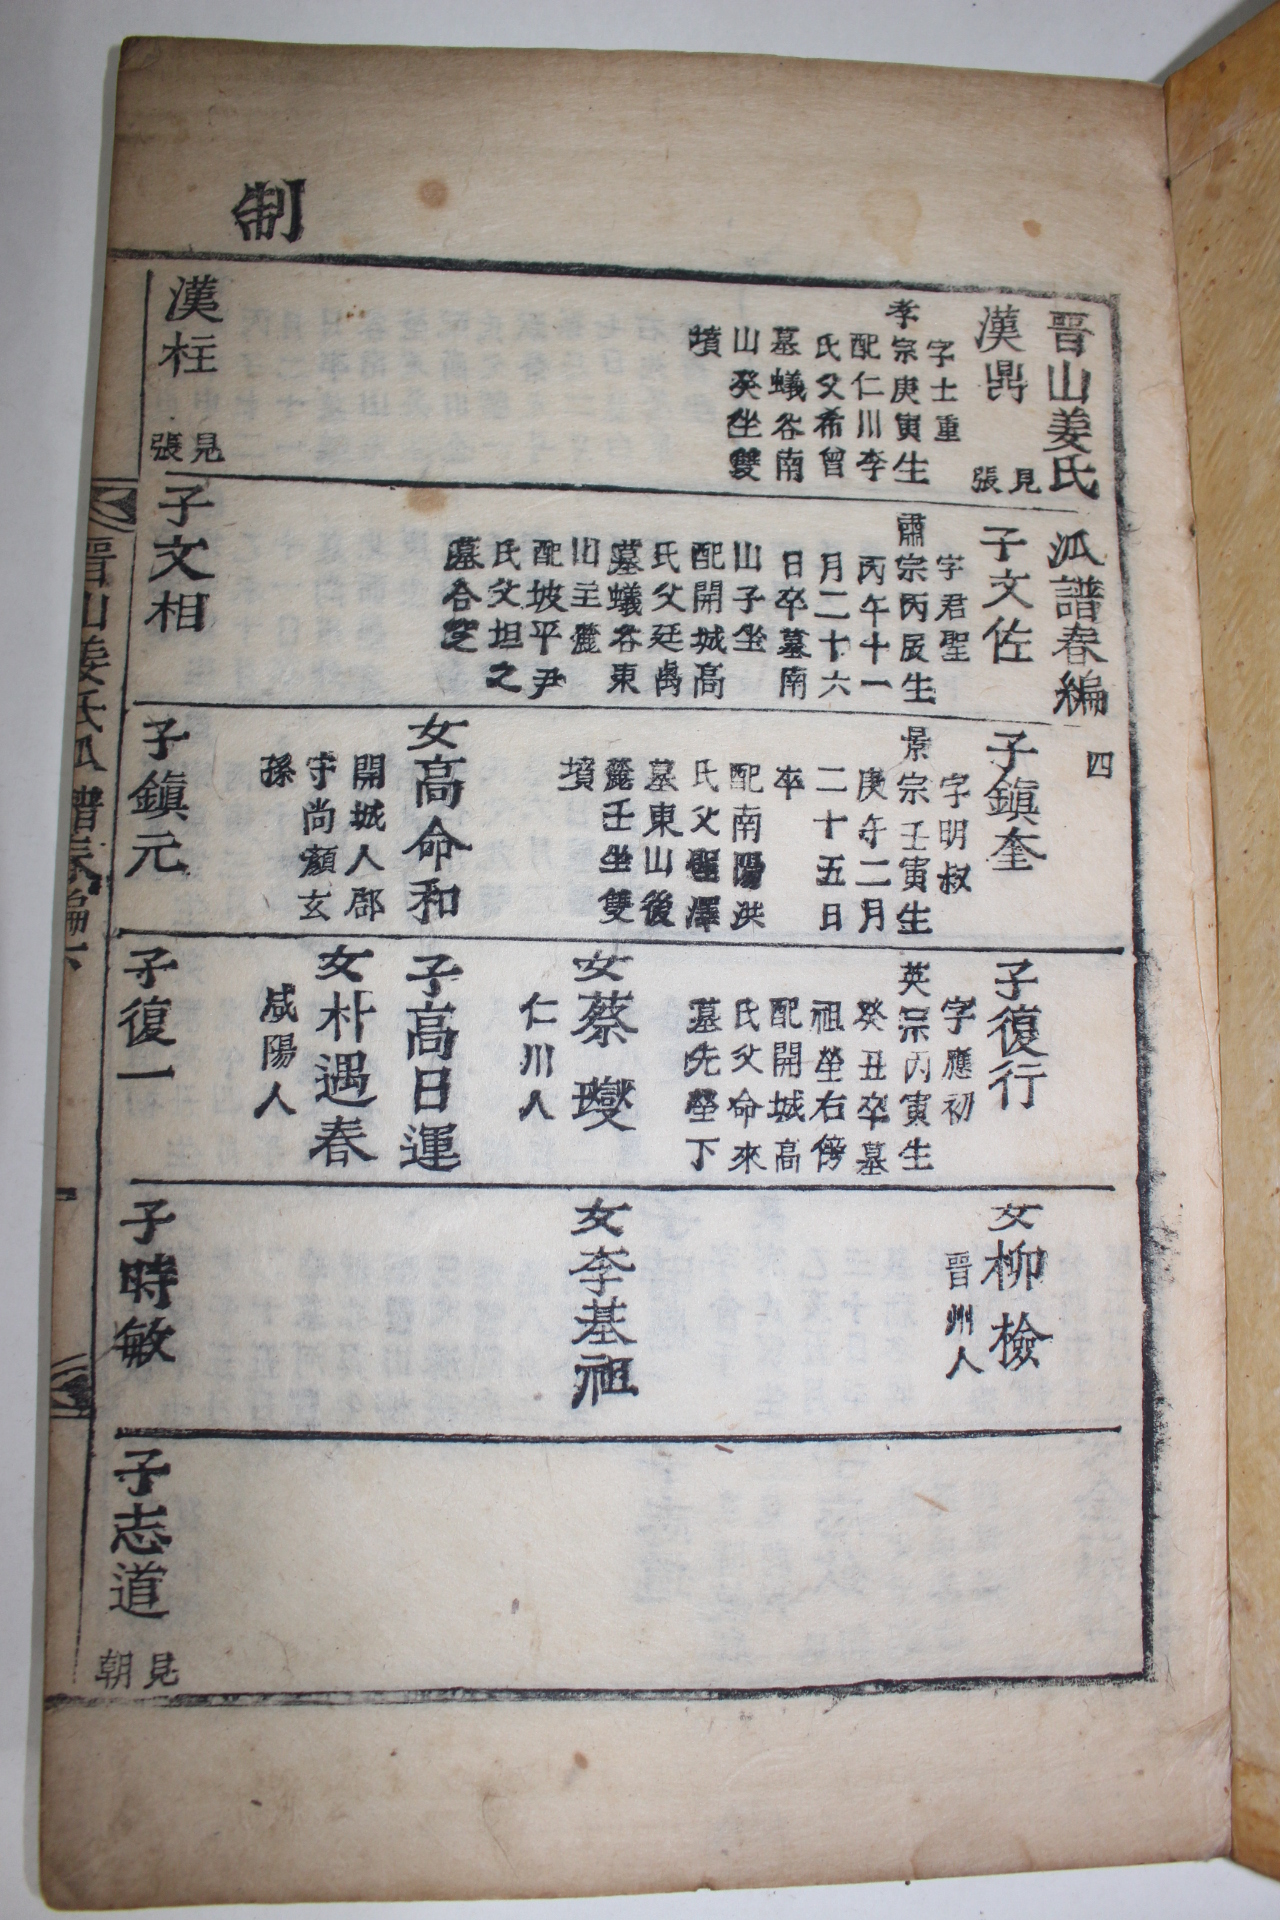 制
晋山姜氏 派譜春編 四
漢鼎
見張
字士重
孝宗庚寅生
配仁川李
氏父希曾
墓蟻谷南
山癸坐雙
墳
漢柱
見張
子文佐
字君聖
肅宗丙辰生
丙午十一
月二十六
日卒墓南
山子坐
配開城高
氏父廷卨
墓蟻谷東
山主麓
配坡平尹
氏父坦之
墓合窆
子文相
子鎮奎
字明叔
景宗壬寅生
庚午二月
二十五日
卒
配南陽洪
氏父聖澤
墓東山後
麓壬坐雙
墳
女高命和
開城人郡
守尚顔玄
孫
子鎮元
子復行
字應初
英宗丙寅生
癸丑卒墓
祖塋右傍
配開城高
氏父命來
墓先塋下
女蔡璎
仁川人
子高日運
女朴遇春
咸陽人
子復一
女柳檢
晋州人
女李基祖
子時敏
子志道
見朝
晋山姜氏派譜春編